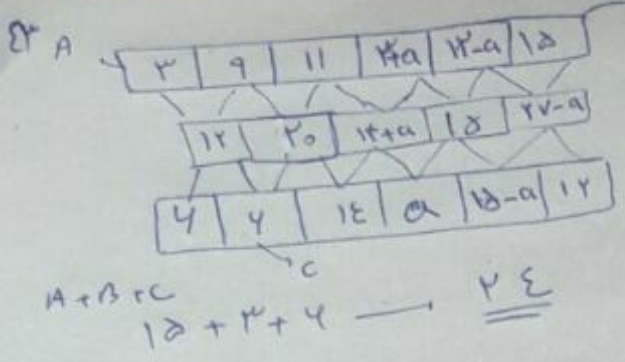 A
۳ ۹ ۱۱ ۳+a ۱۲-a ۱۵
۱۲ ۲۰ ۱۴+a ۱۵ ۲۷-a
۶ ۶ ۱۴ a ۱۵-a ۱۲
C
A+B+C
۱۵ + ۳ + ۶ ۲۴